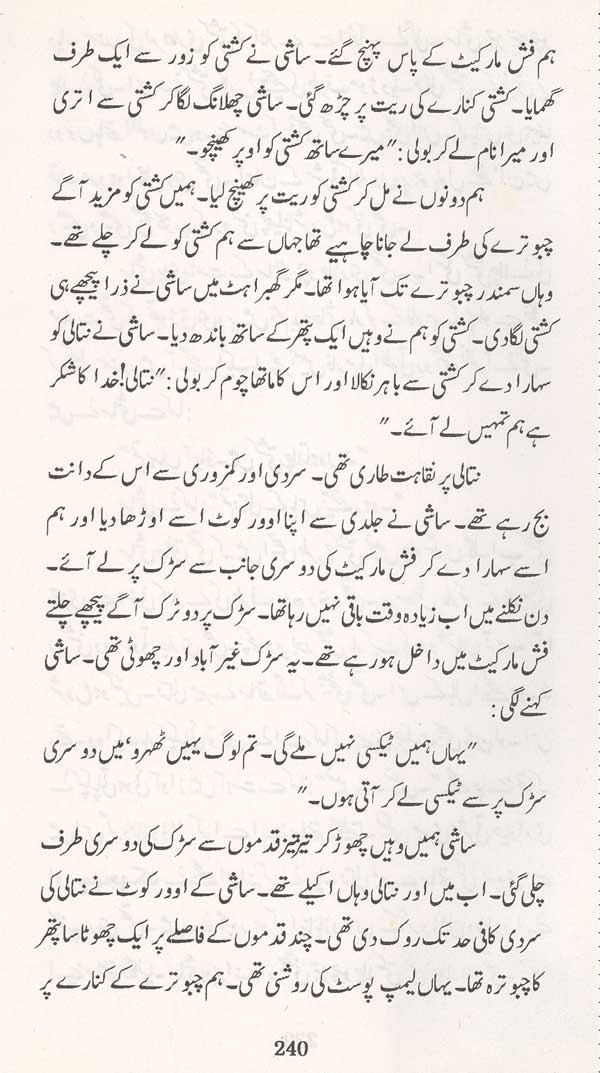 ہم فش مارکیٹ کے پاس پہنچ گئے۔ ساشی نے کشتی کو زور سے ایک طرف
گھمایا۔ کشتی کنارے کی ریت پر چڑھ گئی۔ ساشی چھلانگ لگا کر کشتی سے اتری
اور میرا نام لے کر بولی: "میرے ساتھ کشتی کو اوپر کھینچو۔"
ہم دونوں نے مل کر کشتی کو ریت پر کھینچ لیا۔ ہمیں کشتی کو مزید آگے
چبوترے کی طرف لے جانا چاہیے تھا جہاں سے ہم کشتی کو لے کر چلے تھے۔
وہاں سمندر چبوترے تک آیا ہوا تھا۔ مگر گھبراہٹ میں ساشی نے ذرا پیچھے ہی
کشتی لگا دی۔ کشتی کو ہم نے وہیں ایک پتھر کے ساتھ باندھ دیا۔ ساشی نے نتالی کو
سہارا دے کر کشتی سے باہر نکالا اور اس کا ماتھا چوم کر بولی: "نتالی! خدا کا شکر
ہے ہم تمہیں لے آئے۔"
نتالی پر نقاہت طاری تھی۔ سردی اور کمزوری سے اس کے دانت
بج رہے تھے۔ ساشی نے جلدی سے اپنا اوور کوٹ اسے اوڑھا دیا اور ہم
اسے سہارا دے کر فش مارکیٹ کی دوسری جانب سے سڑک پر لے آئے۔
دن نکلنے میں اب زیادہ وقت باقی نہیں رہا تھا۔ سڑک پر دو ٹرک آگے پیچھے چلتے
فش مارکیٹ میں داخل ہو رہے تھے۔ یہ سڑک غیر آباد اور چھوٹی تھی۔ ساشی
کہنے لگی:
"یہاں ہمیں ٹیکسی نہیں ملے گی۔ تم لوگ یہیں ٹھہرو، میں دوسری
سڑک پر سے ٹیکسی لے کر آتی ہوں۔"
ساشی ہمیں وہیں چھوڑ کر تیز تیز قدموں سے سڑک کی دوسری طرف
چلی گئی۔ اب میں اور نتالی وہاں اکیلے تھے۔ ساشی کے اوور کوٹ نے نتالی کی
سردی کافی حد تک روک دی تھی۔ چند قدموں کے فاصلے پر ایک چھوٹا سا پتھر
کا چبوترہ تھا۔ یہاں لیمپ پوسٹ کی روشنی تھی۔ ہم چبوترے کے کنارے پر
240